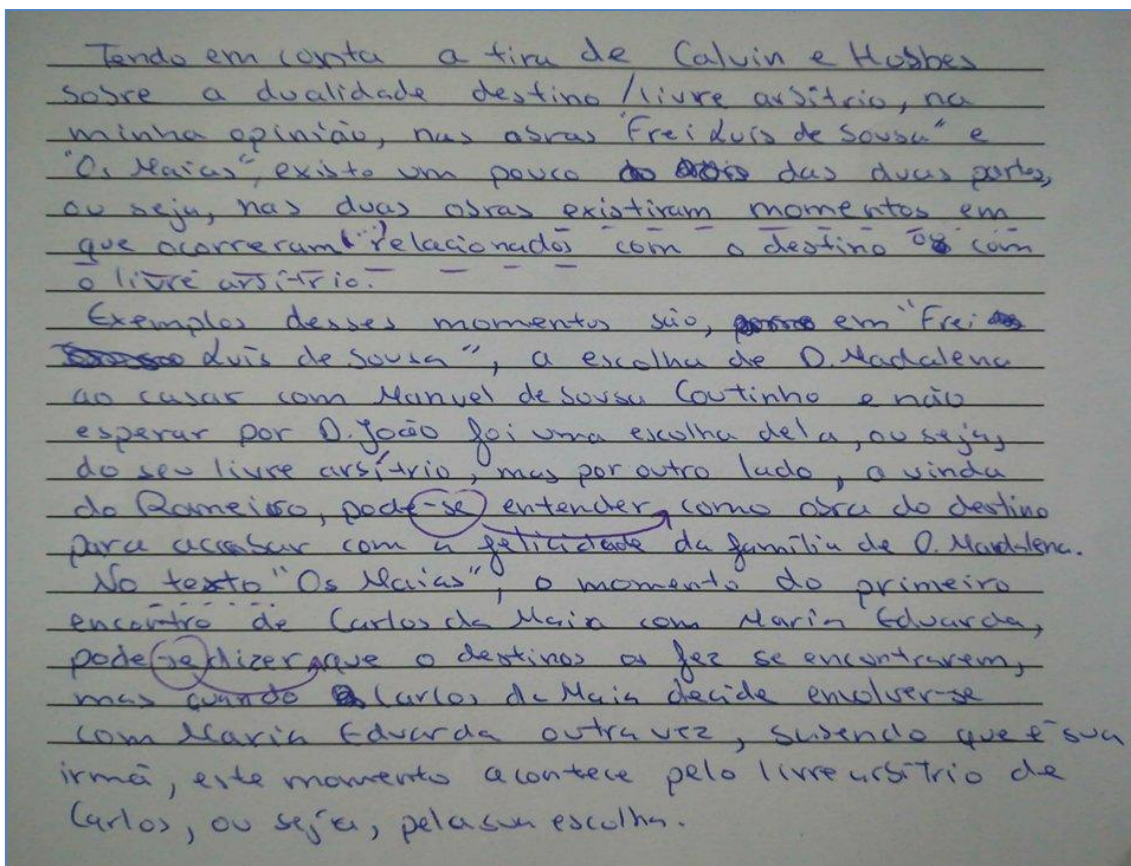 Tendo em conta a tira de Calvin e Hobbes
sobre a dualidade destino/livre arbítrio, na
minha opinião, nas obras "Frei Luís de Sousa" e
"Os Maias", existe um pouco das duas partes,
ou seja, nas duas obras existiram momentos em
que ocorreram relacionados com o destino ou com
o livre arbítrio.
Exemplos desses momentos são, em "Frei
Luís de Sousa", a escolha de D. Madalena
ao casar com Manuel de Sousa Coutinho e não
esperar por D. João foi uma escolha dela, ou seja,
do seu livre arbítrio, mas por outro lado, a vinda
do Romeiro, pode-se entender como obra do destino
para acabar com a felicidade da família de D. Madalena.
No texto "Os Maias", o momento do primeiro
encontro de Carlos da Maia com Maria Eduarda,
pode se dizer que o destinos os fez se encontrarem,
mas quando Carlos da Maia decide envolver-se
com Maria Eduarda outra vez, sabendo que é sua
irmã, este momento acontece pelo livre arbítrio de
Carlos, ou seja, pela sua escolha.